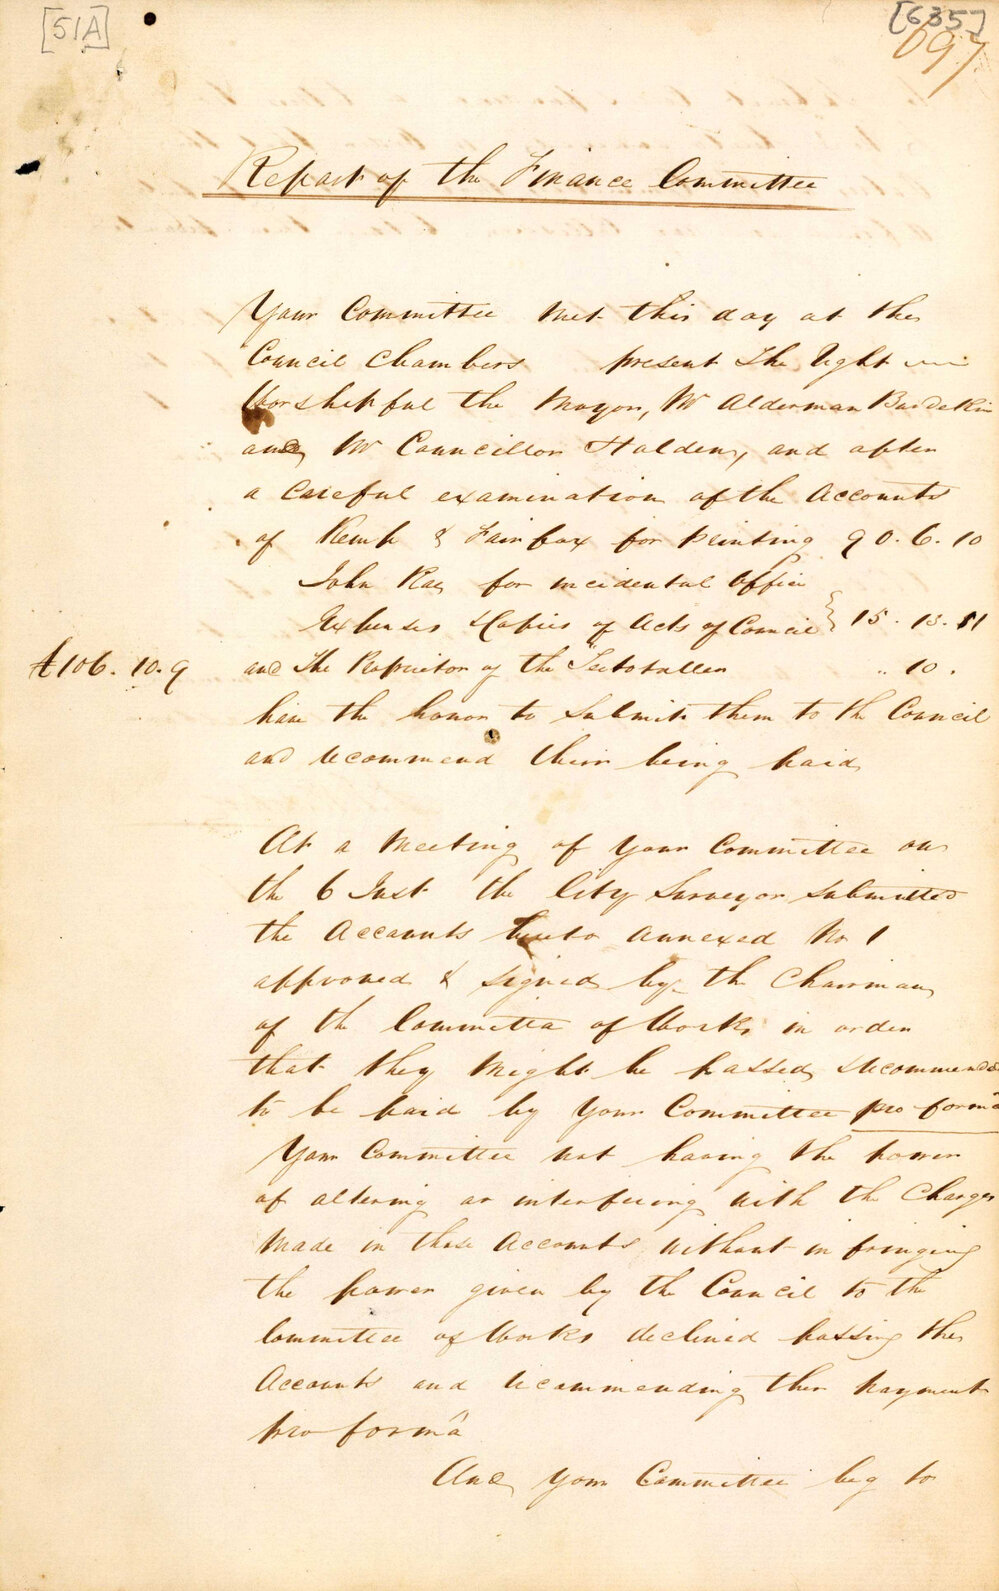 [51A]
[635]
697
Report of the Finance Committee
Your Committee met this day at the
Council Chambers present The Right
Worshipful the Mayor, Mr Alderman Burdekin
and Mr Councillor Holden, and after
a careful examination of the Accounts
of Kemp & Fairfax for printing 90. 6. 10
John Rae for incidental Office
Expenses & Copies of Acts of Council } 15. 13. 11
£106. 10. 9 and The Proprietor of the Teetotaller " 10 .
have the honor to submit them to the Council
and recommend their being paid
At a Meeting of Your Committee on
the 6 Inst the City Surveyor submitted
the Accounts hereto annexed No 1
approved & signed by the Chairman
of the Committee of Works in order
that they might be passed & recommended
to be paid by Your Committee pro formâ
Your Committee not having the power
of altering or interfering with the Charges
made in these Accounts without infringing
the power given by the Council to the
Committee of Works declined passing the
Accounts and recommending their payment
pro formâ
And Your Committee beg to